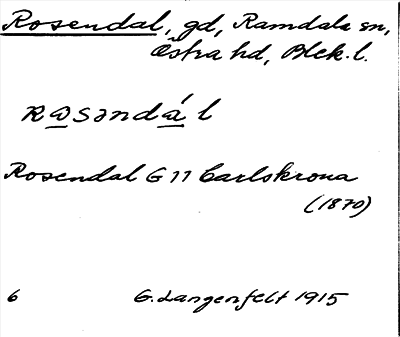 Rosendal, gd, Ramdala sn,
Östra hd, Blek. l.
rosəndál
Rosendal G 11 Carlskrona
(1870)
6 G. Langenfelt 1915